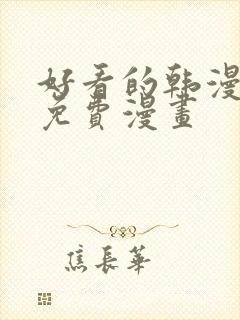 好看的韩漫
免費漫畫
焦長華